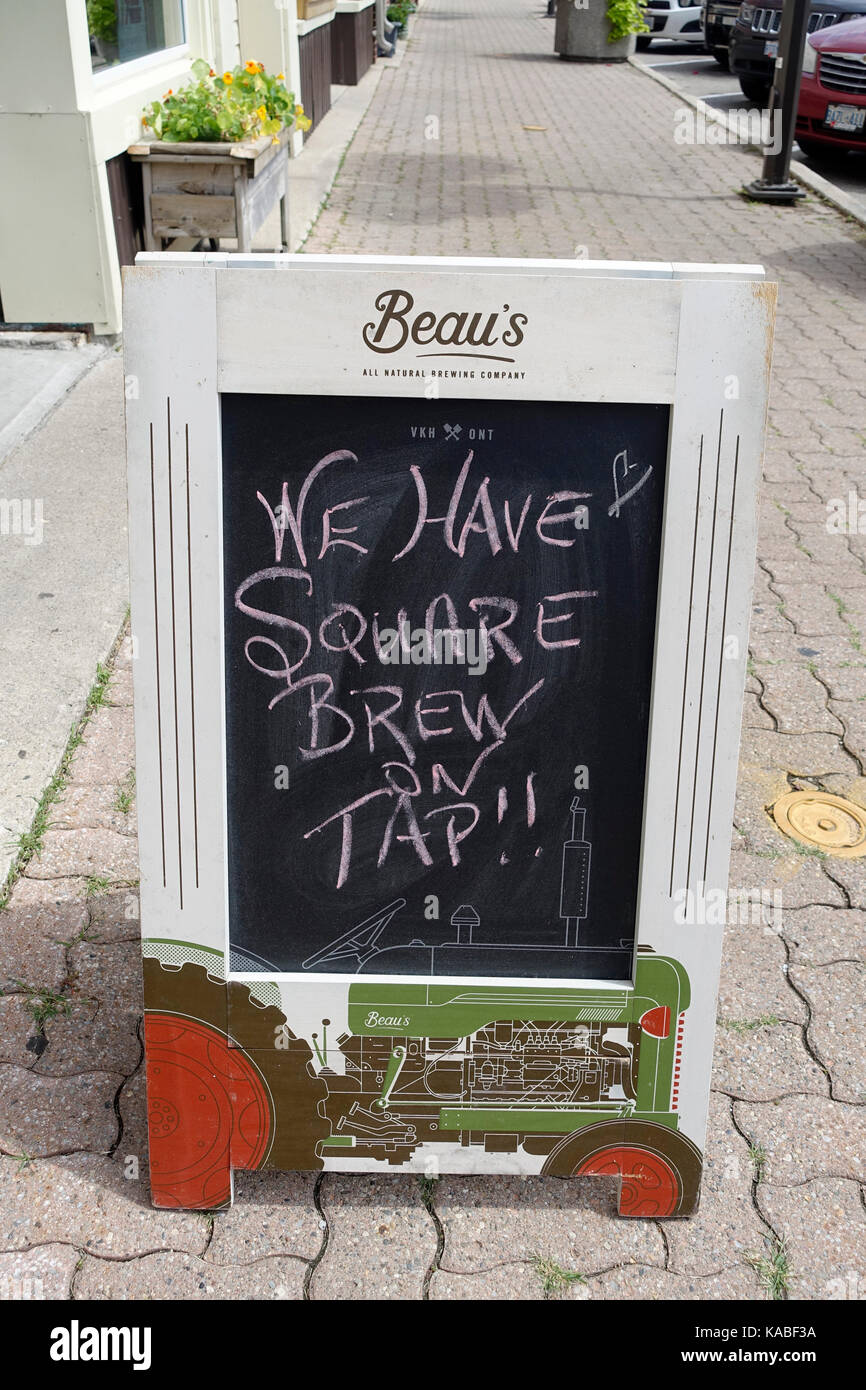 Beau's
ALL NATURAL BREWING COMPANY
VKH ONT
WE HAVE
SQUARE
BREW
ON
TAP!!
Beau's
alamy
Image ID: KABF3A
www.alamy.com